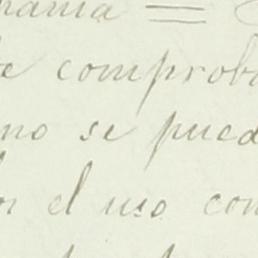 mania =
e comprob
no se pued
on el uso con